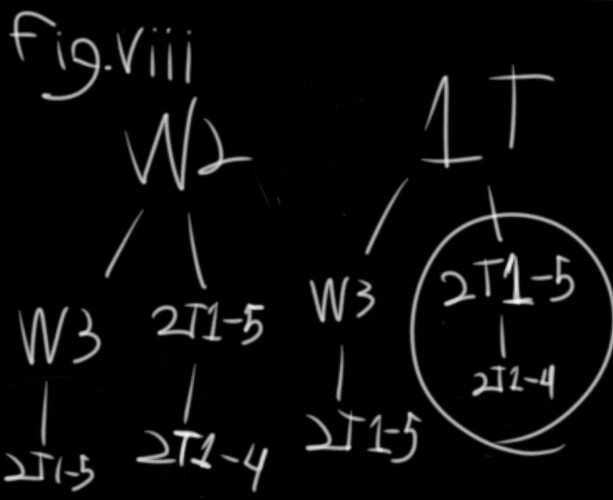 Fig.viii
W2 1T
W3 2T1-5 W3 2T1-5
2T1-5 2T1-4 2T1-5 2T1-4